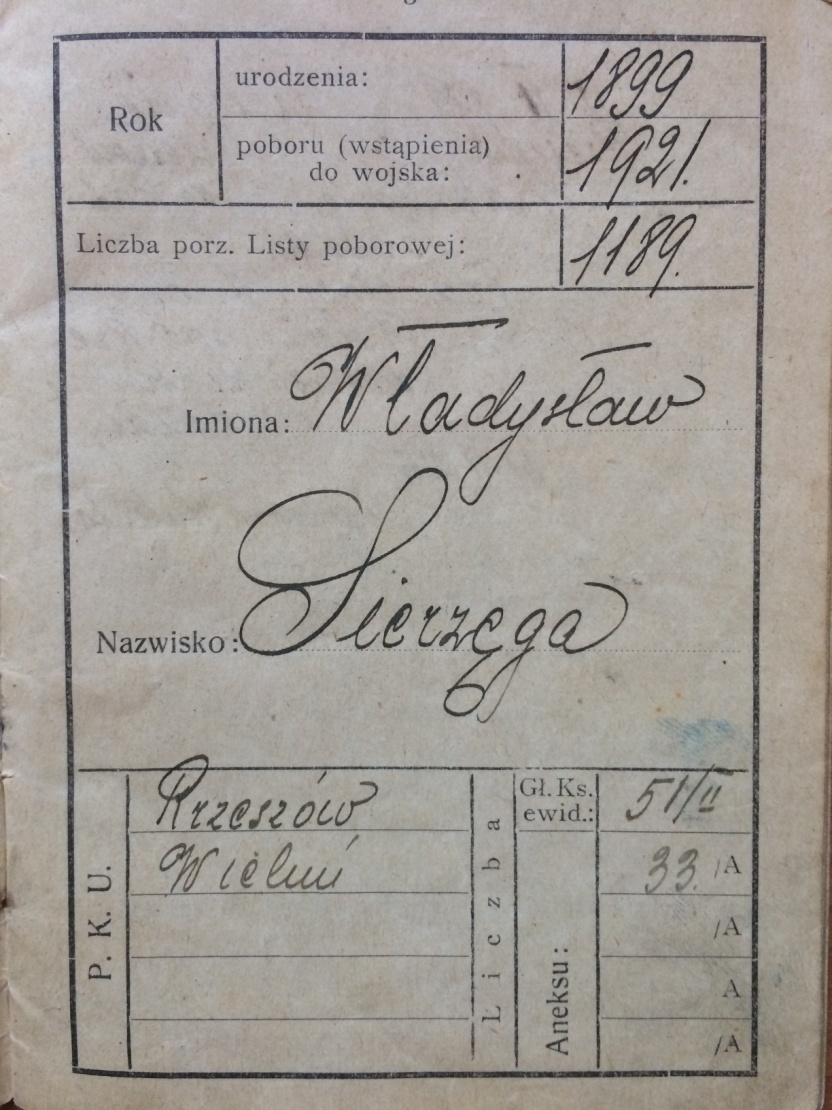 Rok
urodzenia: 1899
poboru (wstąpienia)
do wojska: 1921.
Liczba porz. Listy poborowej: 1189.
Imiona: Władysław
Nazwisko: Sierzęga
P. K. U.
Rrzeszów
Wieluń
Liczba
Gł. Ks.
ewid.: 51/II
Aneksu:
33. /A
/A
A
/A